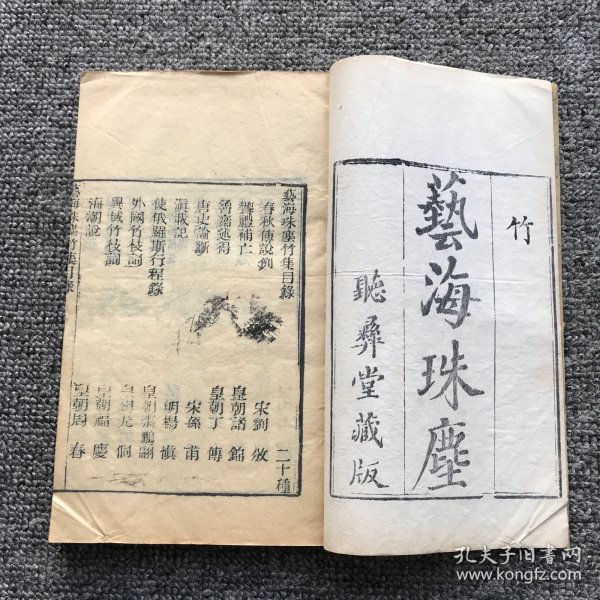 竹
藝海珠塵
聽彝堂藏版
藝海珠塵竹集目錄 二十種
春秋傳說例 宋劉敞
饗禮補亡 皇朝諸錦
魯齋述得 皇朝丁傳
唐史論斷 宋孫甫
滇載記 明楊慎
使俄羅斯行程錄 皇朝張鵬翮
外國竹枝詞 皇朝尤侗
異域竹枝詞 皇朝福慶
海潮說 皇朝周春
藝海珠塵竹集目錄
孔夫子旧书网
www.kongfz.com